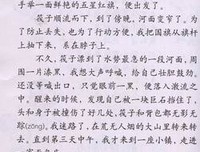 手举一面鲜艳的五星红旗，便出发了。
筏子顺流而下，到了傍晚，河面变窄了。为
了防止丢失，也为了行动方便，我把国旗从旗杆
上抽下来，系在脖子上。
不久，筏子漂到了水势最急的一段河面，周
围一片漆黑，我想大声呼喊，给自己壮壮胆劲，
还没等喊出口，只觉眼前一黑，便落入激流之
中。醒来的时候，发现自己被一块巨石挡住了，
头和身子被撞伤了好几处，筏子和背包都无影无
踪(zōng)。我迷路了，在荒无人烟的大山里转来转
去。直到第三天中午，我才来到一座小镇，走进